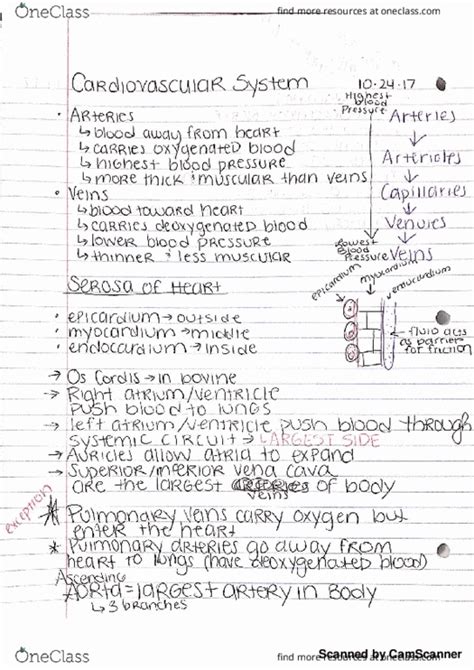 OneClass
find more resources at oneclass.com
Cardiovascular System
10-24-17
• Arteries
↳ blood away from heart
↳ carries oxygenated blood
↳ highest blood pressure
↳ more thick & muscular than veins
• Veins
↳ blood toward heart
↳ carries deoxygenated blood
↳ lower blood pressure
↳ thinner & less muscular
Highest Blood Pressure
Lowest Blood Pressure
Arteries
↓
Arterioles
↓
Capillaries
↓
Venules
↓
Veins
Serosa of Heart
• epicardium → outside
• myocardium → middle
• endocardium → inside
epicardium
myocardium
← fluid acts
as barrier
for friction
→ Os Cordis → in bovine
→ Right atrium/ventricle
push blood to lungs
→ left atrium/ventricle push blood through
systemic circuit → LARGEST SIDE
→ Auricles allow atria to expand
→ Superior/inferior vena cava
are the largest arteries of body
veins
exception
* Pulmonary veins carry oxygen but
enter the heart
* Pulmonary arteries go away from
heart to lungs (have deoxygenated blood)
Ascending
Aorta = largest artery in Body
↳ 3 branches
Scanned by CamScanner
OneClass
find more resources at oneclass.com